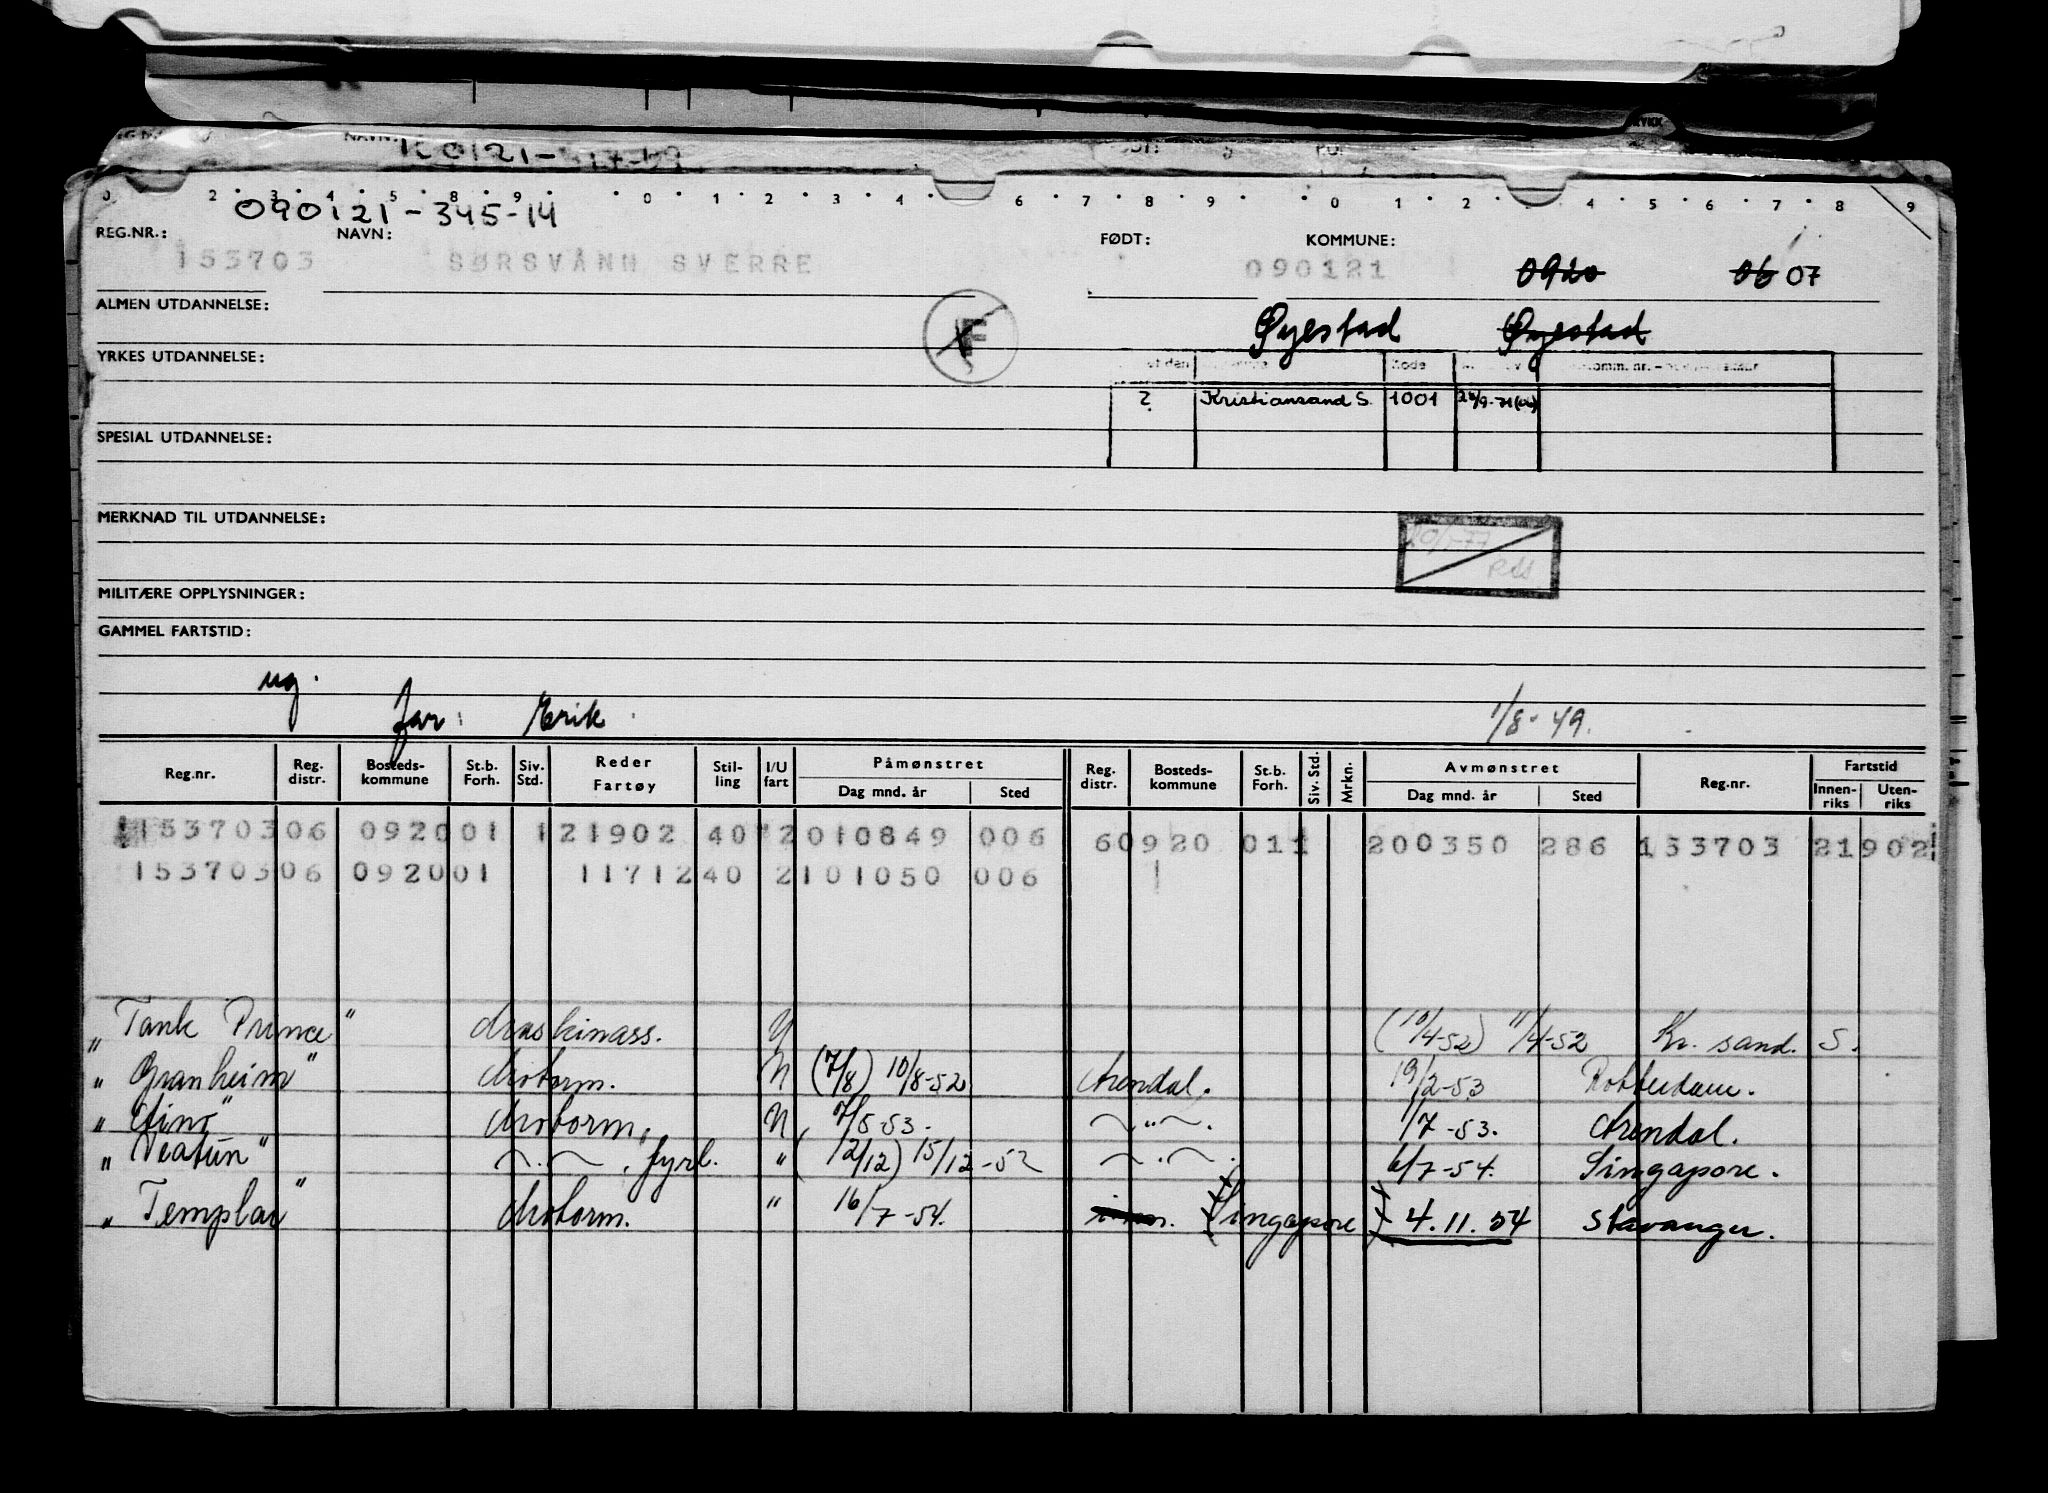 090121-345-14
REG.NR.: NAVN: FØDT: KOMMUNE:
153703 SØRSVANN SVERRE 090121 0920 06 07
ALMEN UTDANNELSE:
F
Øyestad Øyestad
YRKES UTDANNELSE:
2 Kristiansand S. 1001
SPESIAL UTDANNELSE:
MERKNAD TIL UTDANNELSE:
MILITÆRE OPPLYSNINGER:
GAMMEL FARTSTID:
ug.
Far: Erik 1/8-49.
Reg.nr. Reg. distr. Bosteds-kommune St.b. Forh. Siv. Std. Reder Fartøy Stil-ling I/U fart Påmønstret Dag mnd. år Sted Reg. distr. Bosteds-kommune St.b. Forh. Siv. Std. Mrkn. Avmønstret Dag mnd. år Sted Reg.nr. Fartstid Innen-riks Uten-riks
153703 06 0920 01 1 21902 40 2 010849 006 6 0920 01 1 1 200350 286 153703 21902
153703 06 0920 01 11712 40 2 101050 006
"Tank Prince" Maskinass. U (10/4-52) 11/4-52 Kr. sand. S.
"Granheim" Motorm. U (7/8) 10/8-52 Arendal. 19/2-53 Rotterdam.
Motorm. U 7/5-53. -"-. 1/7-53. Arendal.
"Veatun" -"-. fyrb. " (12/12) 15/12-52 -"-. 6/7-54. Singapore.
"Templar" Motorm. " 16/7-54. (Singapore) 4.11.54 Stavanger.